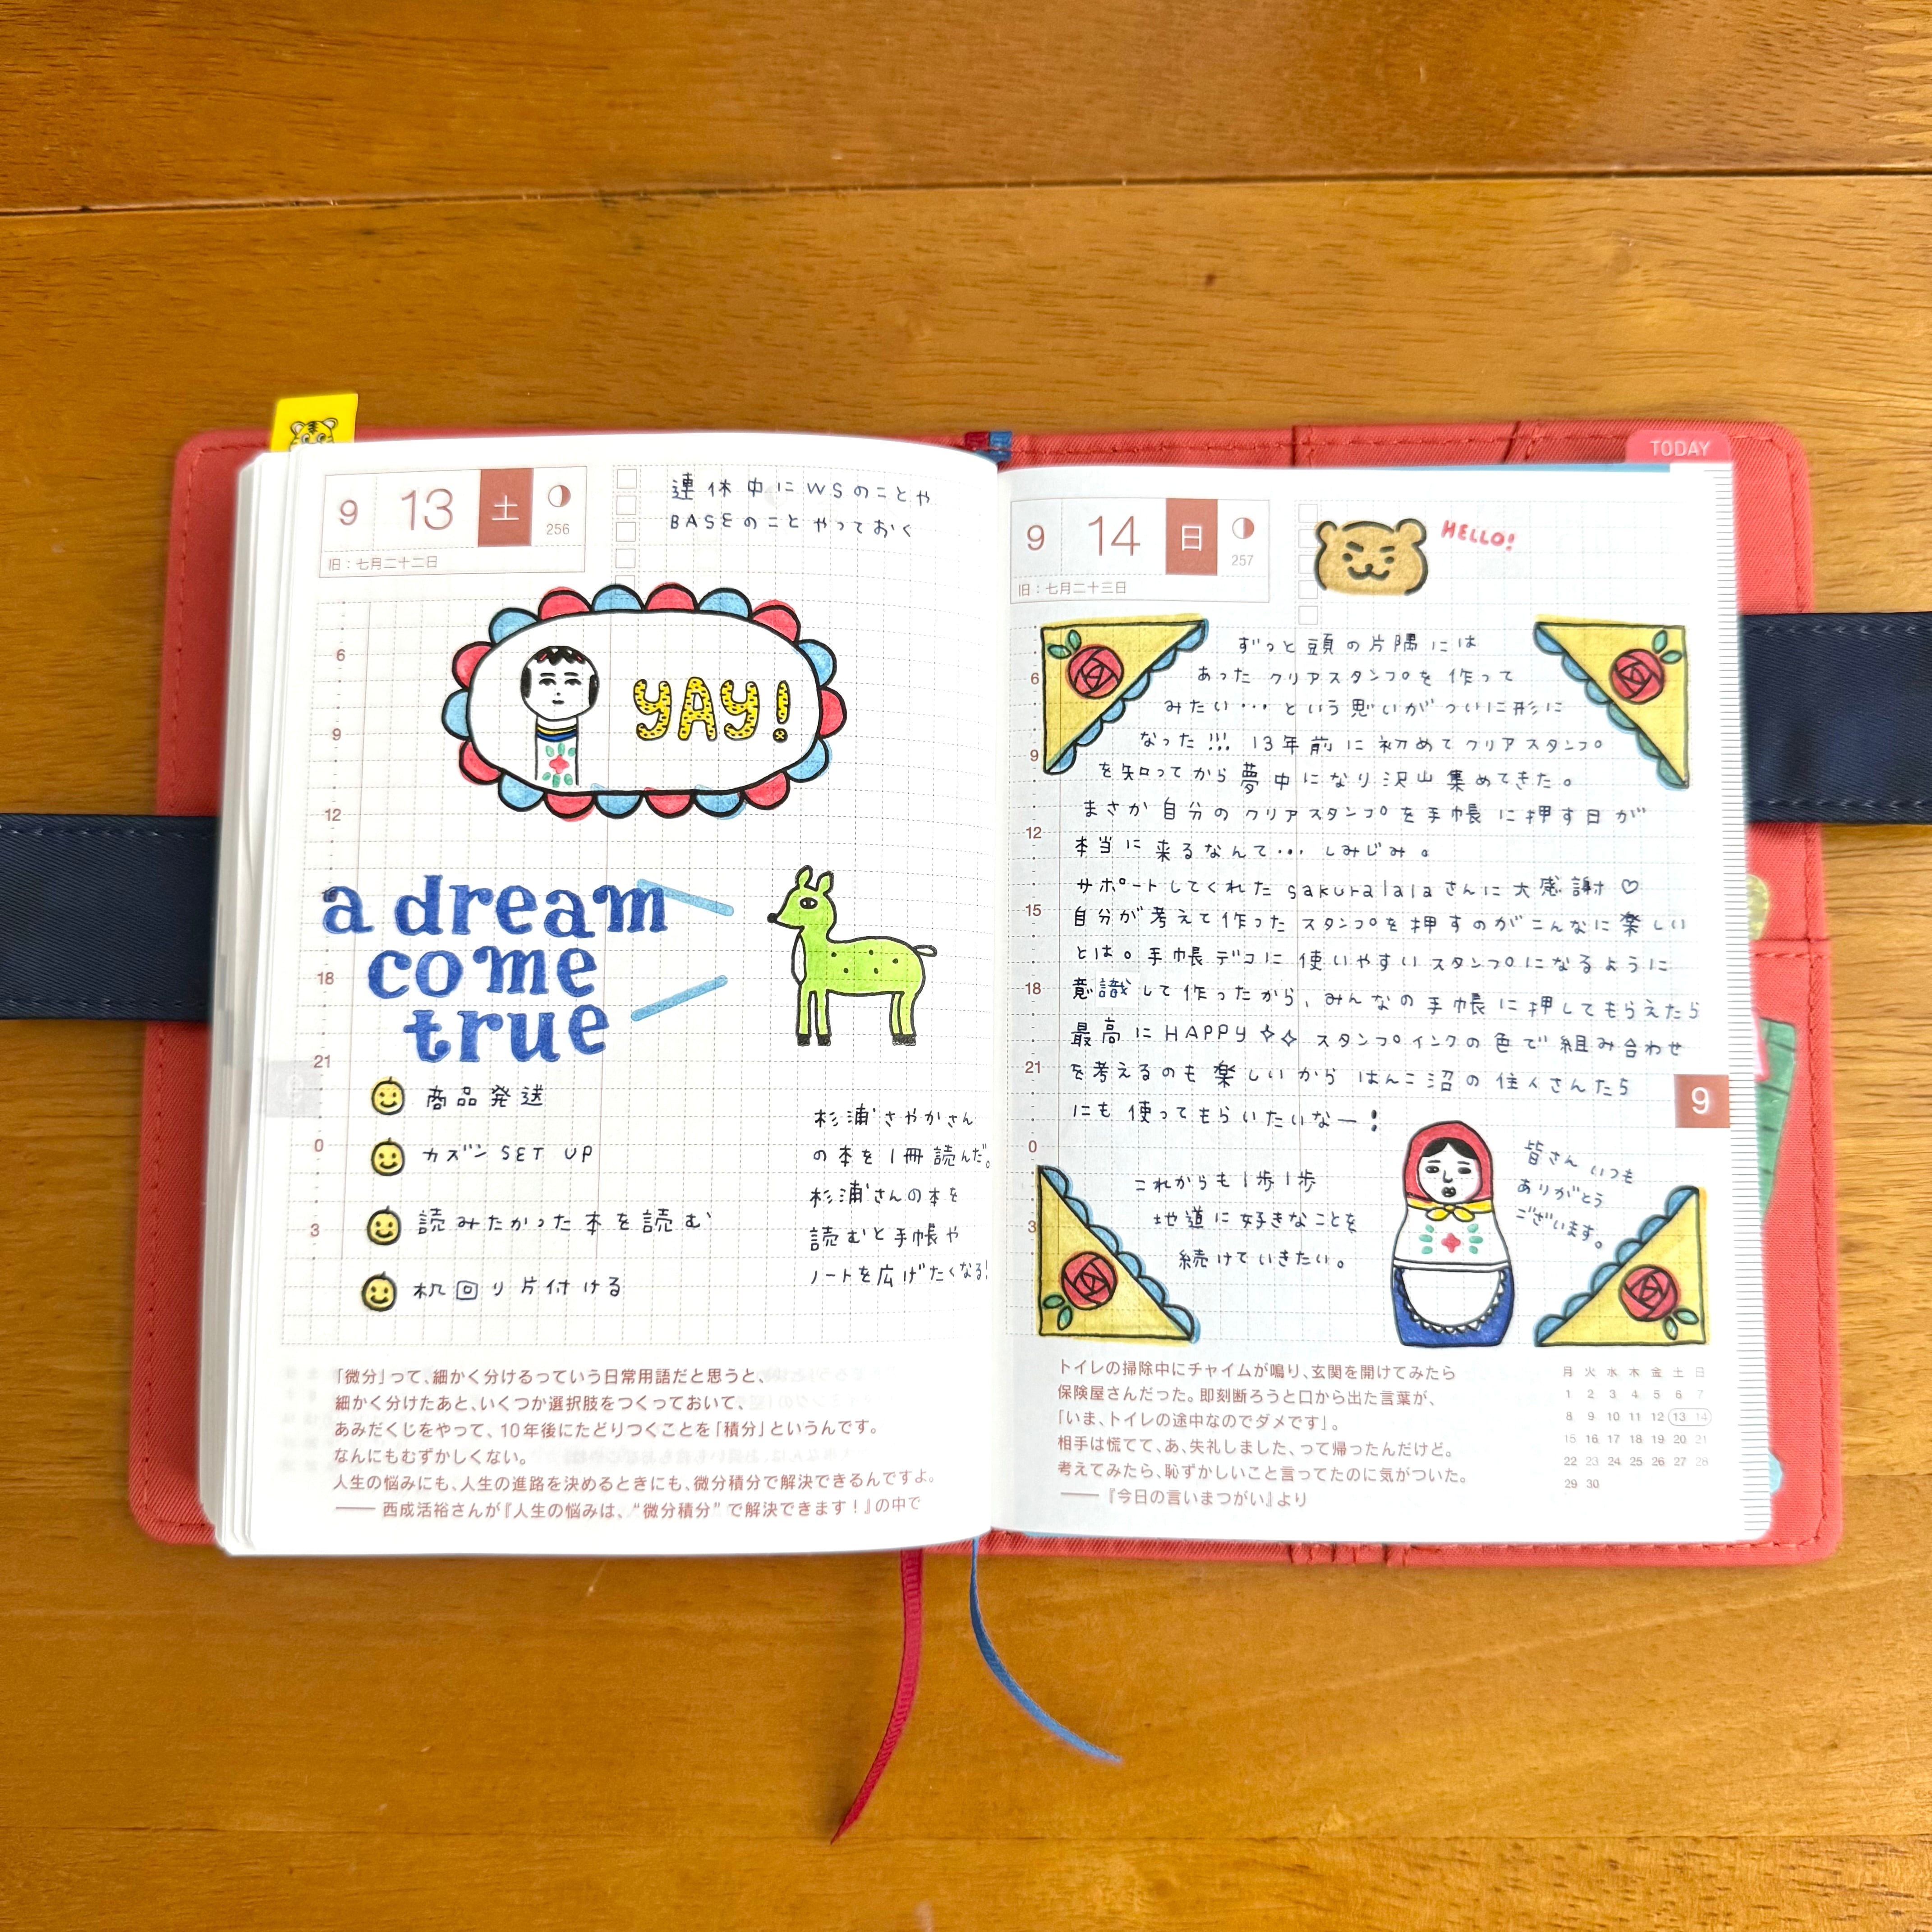 9 13 土
256
旧：七月二十二日
連休中にWSのことや
BASEのことやっておく
6
9
12
18
21
0
3
YAY!
a dream
come
true
商品発送
カズン SET UP
読みたかった本を読む
机回り片付ける
杉浦さやかさん
の本を1冊読んだ。
杉浦さんの本を
読むと手帳や
ノートを広げたくなる!
「微分」って、細かく分けるっていう日常用語だと思うと、
細かく分けたあと、いくつか選択肢をつくっておいて、
あみだくじをやって、10年後にたどりつくことを「積分」というんです。
なんにもむずかしくない。
人生の悩みにも、人生の進路を決めるときにも、微分積分で解決できるんですよ。
―― 西成活裕さんが『人生の悩みは、“微分積分”で解決できます！』の中で
TODAY
9 14 日
257
旧：七月二十三日
HELLO!
6
9
12
15
18
21
0
3
ずっと頭の片隅には
あったクリアスタンプを作って
みたい…という思いがついに形に
なった!!! 13年前に初めてクリアスタンプ
を知ってから夢中になり沢山集めてきた。
まさか自分のクリアスタンプを手帳に押す日が
本当に来るなんて… しみじみ。
サポートしてくれた sakuralalaさんに大感謝♡
自分が考えて作ったスタンプを押すのがこんなに楽しい
とは。手帳デコに使いやすいスタンプになるように
意識して作ったから、みんなの手帳に押してもらえたら
最高にHAPPY✧✧ スタンプインクの色で組み合わせ
を考えるのも楽しいから はんこ沼の住人さんたち
にも使ってもらいたいなー!
9
これからも1歩1歩
地道に好きなことを
続けていきたい。
皆さんいつも
ありがとう
ございます。
トイレの掃除中にチャイムが鳴り、玄関を開けてみたら
保険屋さんだった。即刻断ろうと口から出た言葉が、
「いま、トイレの途中なのでダメです」。
相手は慌てて、あ、失礼しました、って帰ったんだけど。
考えてみたら、恥ずかしいこと言ってたのに気がついた。
―― 『今日の言いまつがい』より
月 火 水 木 金 土 日
1 2 3 4 5 6 7
8 9 10 11 12 13 14
15 16 17 18 19 20 21
22 23 24 25 26 27 28
29 30